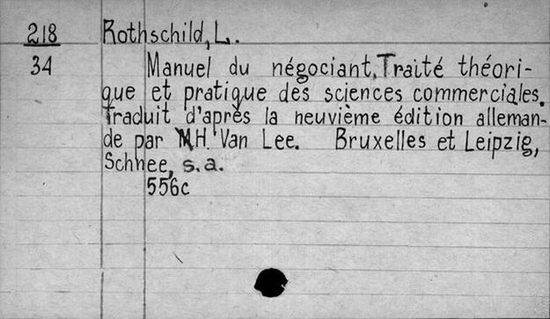 218 Rothschild, L.
34 Manuel du négociant, Traité théori-
que et pratique des sciences commerciales.
Traduit d'après la neuvième édition alleman-
de par M.H. Van Lee. Bruxelles et Leipzig,
Schnee, s.a.
556c